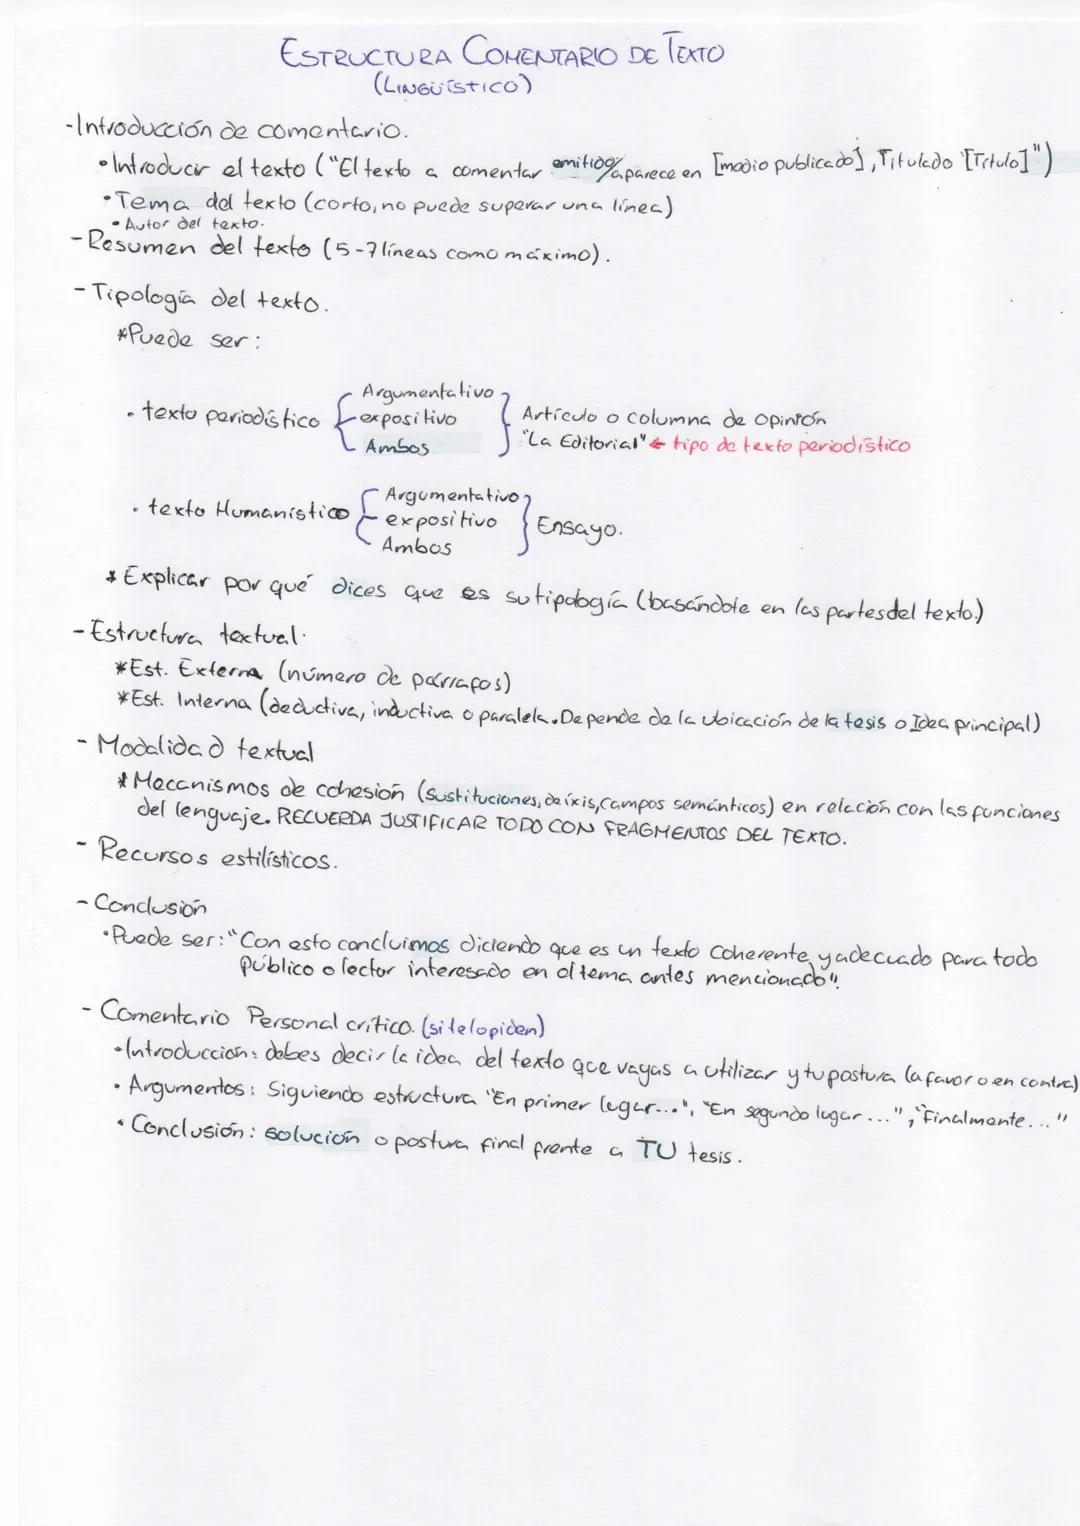 ESTRUCTURA COMENTARIO DE TEXTO
(LINGÜÍSTICO)
-Introducción de comentario.
•Introducir el texto ("El texto a comentar emitido/aparece en [medio publicado], Titulado '[Título]")
•Tema del texto (corto, no puede superar una línea)
•Autor del texto.
-Resumen del texto (5-7 líneas como máximo).
-Tipología del texto.
*Puede ser:
• texto periodístico { Argumentativo expositivo Ambos } Artículo o columna de opinión "La Editorial" ← tipo de texto periodístico
• texto Humanístico { Argumentativo expositivo Ambos } Ensayo.
* Explicar por qué dices que es su tipología (basándote en las partes del texto.)
-Estructura textual.
*Est. Externa (número de párrafos)
*Est. Interna (deductiva, inductiva o paralela. Depende de la ubicación de la tesis o Idea principal)
- Modalidad textual
*Mecanismos de cohesión (sustituciones, deíxis, campos semánticos) en relación con las funciones
del lenguaje. RECUERDA JUSTIFICAR TODO CON FRAGMENTOS DEL TEXTO.
- Recursos estilísticos.
- Conclusión
•Puede ser: "Con esto concluimos diciendo que es un texto coherente, y adecuado para todo
público o lector interesado en el tema antes mencionado".
- Comentario Personal crítico. (si te lo piden)
•Introducción: debes decir la idea del texto que vayas a utilizar y tu postura (a favor o en contra)
• Argumentos: Siguiendo estructura "En primer lugar...", "En segundo lugar...", "Finalmente..."
• Conclusión: solución o postura final frente a TU tesis.